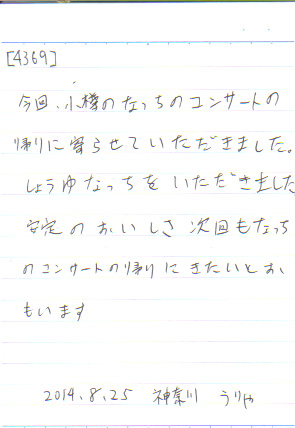 [4369]
今回、小樽のなっちのコンサートの
帰りに寄らせていただきました。
しょうゆなっちをいただきました
安定のおいしさ 次回もなっち
のコンサートの帰りにきたいとお
もいます
2014.8.25 神奈川 うりゃ